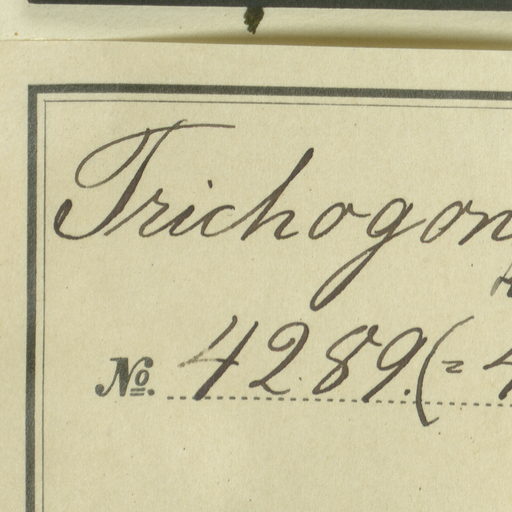 Trichogon
No. 4289. (= 4